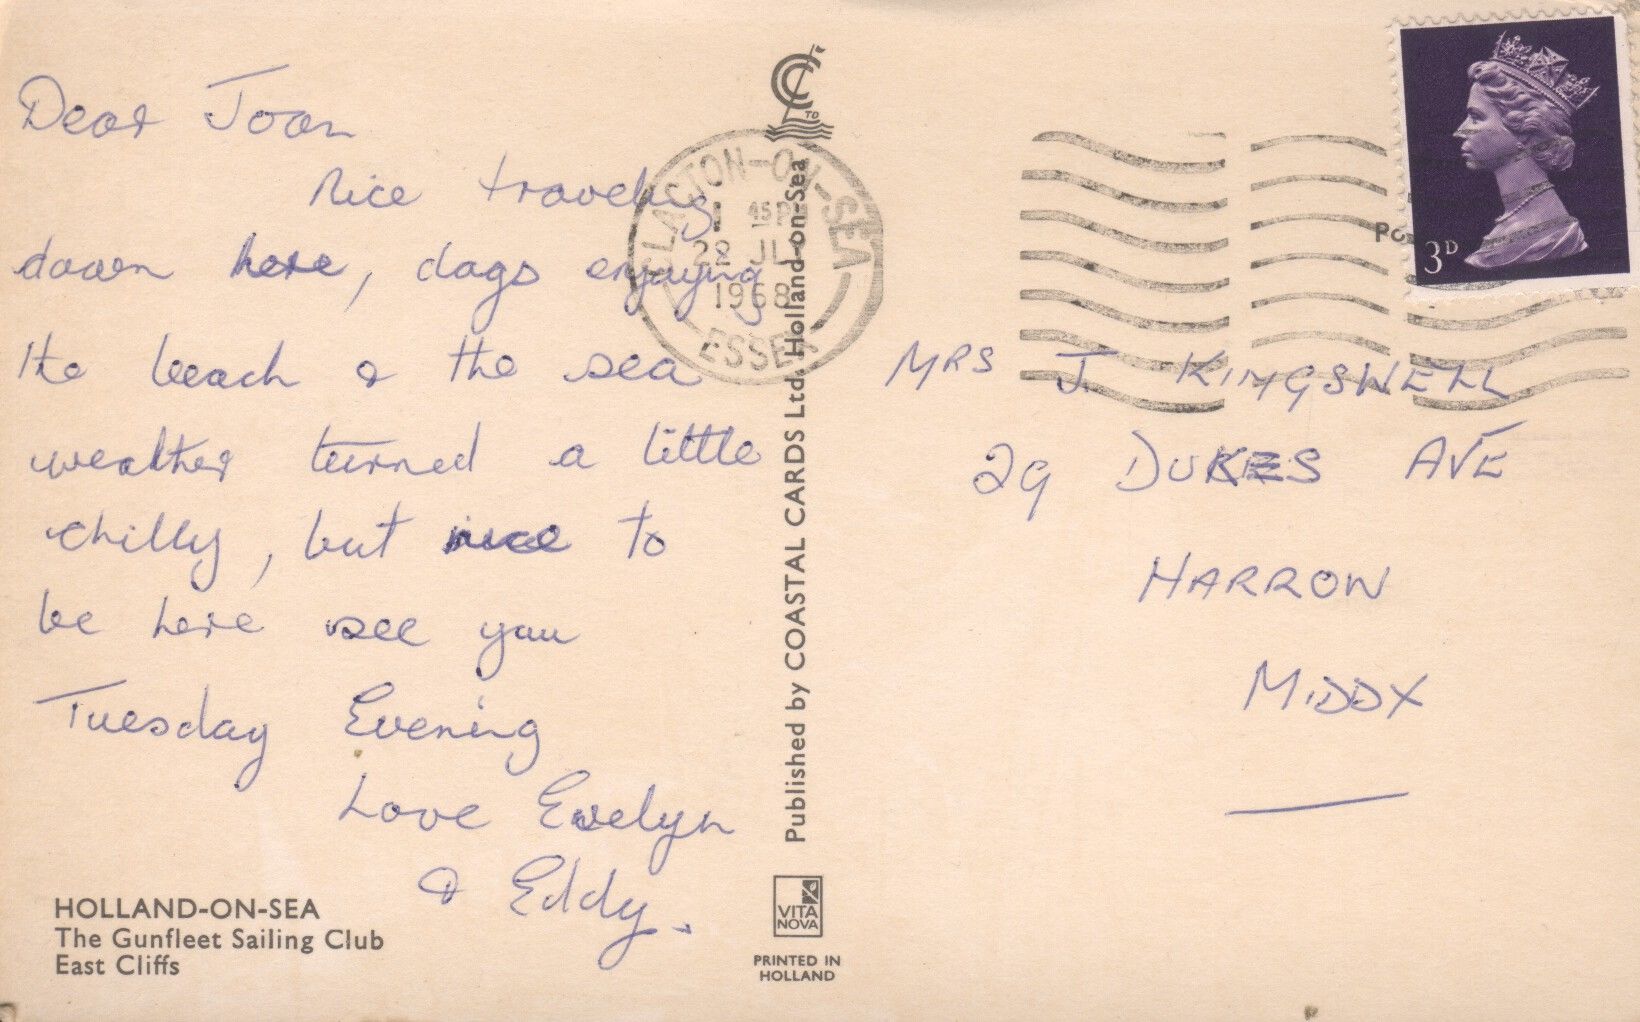 Dear Joan
Nice traveling
down here, dogs enjoying
the beach & the sea
weather turned a little
chilly, but nice to
be here see you
Tuesday Evening
Love Evelyn
& Eddy.
HOLLAND-ON-SEA
The Gunfleet Sailing Club
East Cliffs
TO
CLACTON-ON-SEA
45P
28 JL
1968
ESSEX
Published by COASTAL CARDS Ltd. Holland-on-Sea
VITA
NOVA
PRINTED IN
HOLLAND
3D
MRS J. KINGSWELL
29 DUKES AVE
HARROW
MIDDX